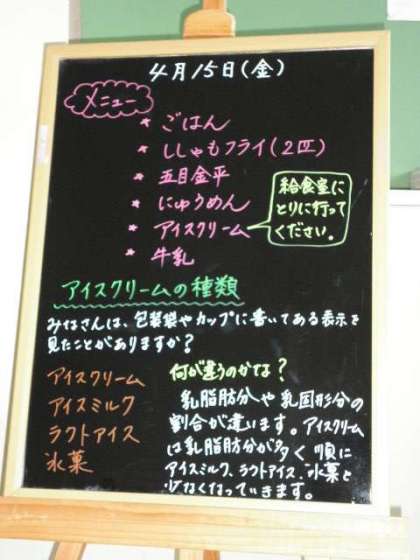 4月15日(金)
メニュー
* ごはん
* ししゃもフライ(2匹)
* 五目金平
* にゅうめん
* アイスクリーム
* 牛乳
給食室に
とりに行って
ください。
アイスクリームの種類
みなさんは、包装袋やカップに書いてある表示を
見たことがありますか?
アイスクリーム
アイスミルク
ラクトアイス
氷菓
何が違うのかな?
乳脂肪分や乳固形分の
割合が違います。アイスクリーム
は乳脂肪分が多く順に
アイスミルク、ラクトアイス、氷菓と
少なくなっていきます。